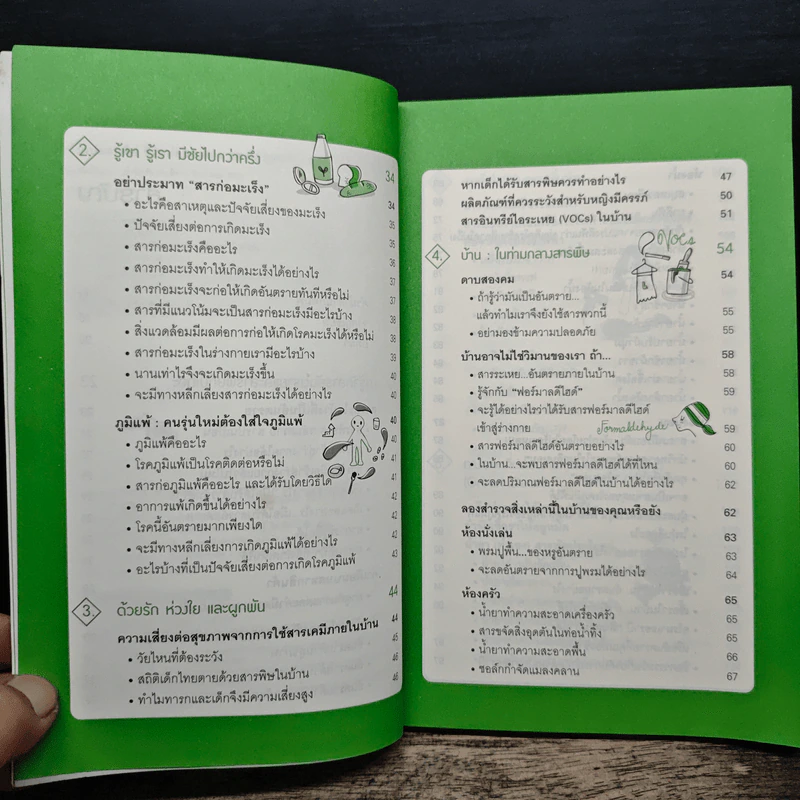 2. รู้เขา รู้เรา มีชัยไปกว่าครึ่ง 34
อย่าประมาท "สารก่อมะเร็ง" 34
• อะไรคือสาเหตุและปัจจัยเสี่ยงของมะเร็ง 35
• ปัจจัยเสี่ยงต่อการเกิดมะเร็ง 35
• สารก่อมะเร็งคืออะไร 36
• สารก่อมะเร็งทำให้เกิดมะเร็งได้อย่างไร 37
• สารก่อมะเร็งจะก่อให้เกิดอันตรายทันทีหรือไม่ 37
• สารที่มีแนวโน้มจะเป็นสารก่อมะเร็งมีอะไรบ้าง 38
• สิ่งแวดล้อมมีผลต่อการก่อให้เกิดโรคมะเร็งได้หรือไม่ 38
• สารก่อมะเร็งในร่างกายเรามีอะไรบ้าง 39
• นานเท่าไรจึงจะเกิดมะเร็งขึ้น 40
• จะมีทางหลีกเลี่ยงสารก่อมะเร็งได้อย่างไร 40
ภูมิแพ้ : คนรุ่นใหม่ต้องใส่ใจภูมิแพ้ 40
• ภูมิแพ้คืออะไร 40
• โรคภูมิแพ้เป็นโรคติดต่อหรือไม่ 41
• สารก่อภูมิแพ้คืออะไร และได้รับโดยวิธีใด 41
• อาการแพ้เกิดขึ้นได้อย่างไร 42
• โรคนี้อันตรายมากเพียงใด 42
• จะมีทางหลีกเลี่ยงการเกิดภูมิแพ้ได้อย่างไร 42
• อะไรบ้างที่เป็นปัจจัยเสี่ยงต่อการเกิดโรคภูมิแพ้ 43
3. ด้วยรัก ห่วงใย และผูกพัน 44
ความเสี่ยงต่อสุขภาพจากการใช้สารเคมีภายในบ้าน 44
• วัยไหนที่ต้องระวัง 45
• สถิติเด็กไทยตายด้วยสารพิษในบ้าน 46
• ทำไมทารกและเด็กจึงมีความเสี่ยงสูง 46
หากเด็กได้รับสารพิษควรทำอย่างไร 47
ผลิตภัณฑ์ที่ควรระวังสำหรับหญิงมีครรภ์ 50
สารอินทรีย์ไอระเหย (VOCs) ในบ้าน 51
4. บ้าน : ในท่ามกลางสารพิษ 54
VOCs
ดาบสองคม 54
• ถ้ารู้ว่ามันเป็นอันตราย...
แล้วทำไมเราจึงยังใช้สารพวกนี้ 55
• อย่ามองข้ามความปลอดภัย 55
บ้านอาจไม่ใช่วิมานของเรา ถ้า... 58
• สารระเหย...อันตรายภายในบ้าน 58
• รู้จักกับ "ฟอร์มาลดีไฮด์" 59
• จะรู้ได้อย่างไรว่าได้รับสารฟอร์มาลดีไฮด์
เข้าสู่ร่างกาย 59
Formaldehyde
• สารฟอร์มาลดีไฮด์อันตรายอย่างไร 60
• ในบ้าน...จะพบสารฟอร์มาลดีไฮด์ได้ที่ไหน 60
• จะลดปริมาณฟอร์มาลดีไฮด์ในบ้านได้อย่างไร 62
ลองสำรวจสิ่งเหล่านี้ในบ้านของคุณหรือยัง 62
ห้องนั่งเล่น 63
• พรมปูพื้น...ของหรูอันตราย 63
• จะลดอันตรายจากการปูพรมได้อย่างไร 64
ห้องครัว 65
• น้ำยาทำความสะอาดเครื่องครัว 65
• สารขจัดสิ่งอุดตันในท่อน้ำทิ้ง 65
• น้ำยาทำความสะอาดพื้น 66
• ชอล์กกำจัดแมลงคลาน 67